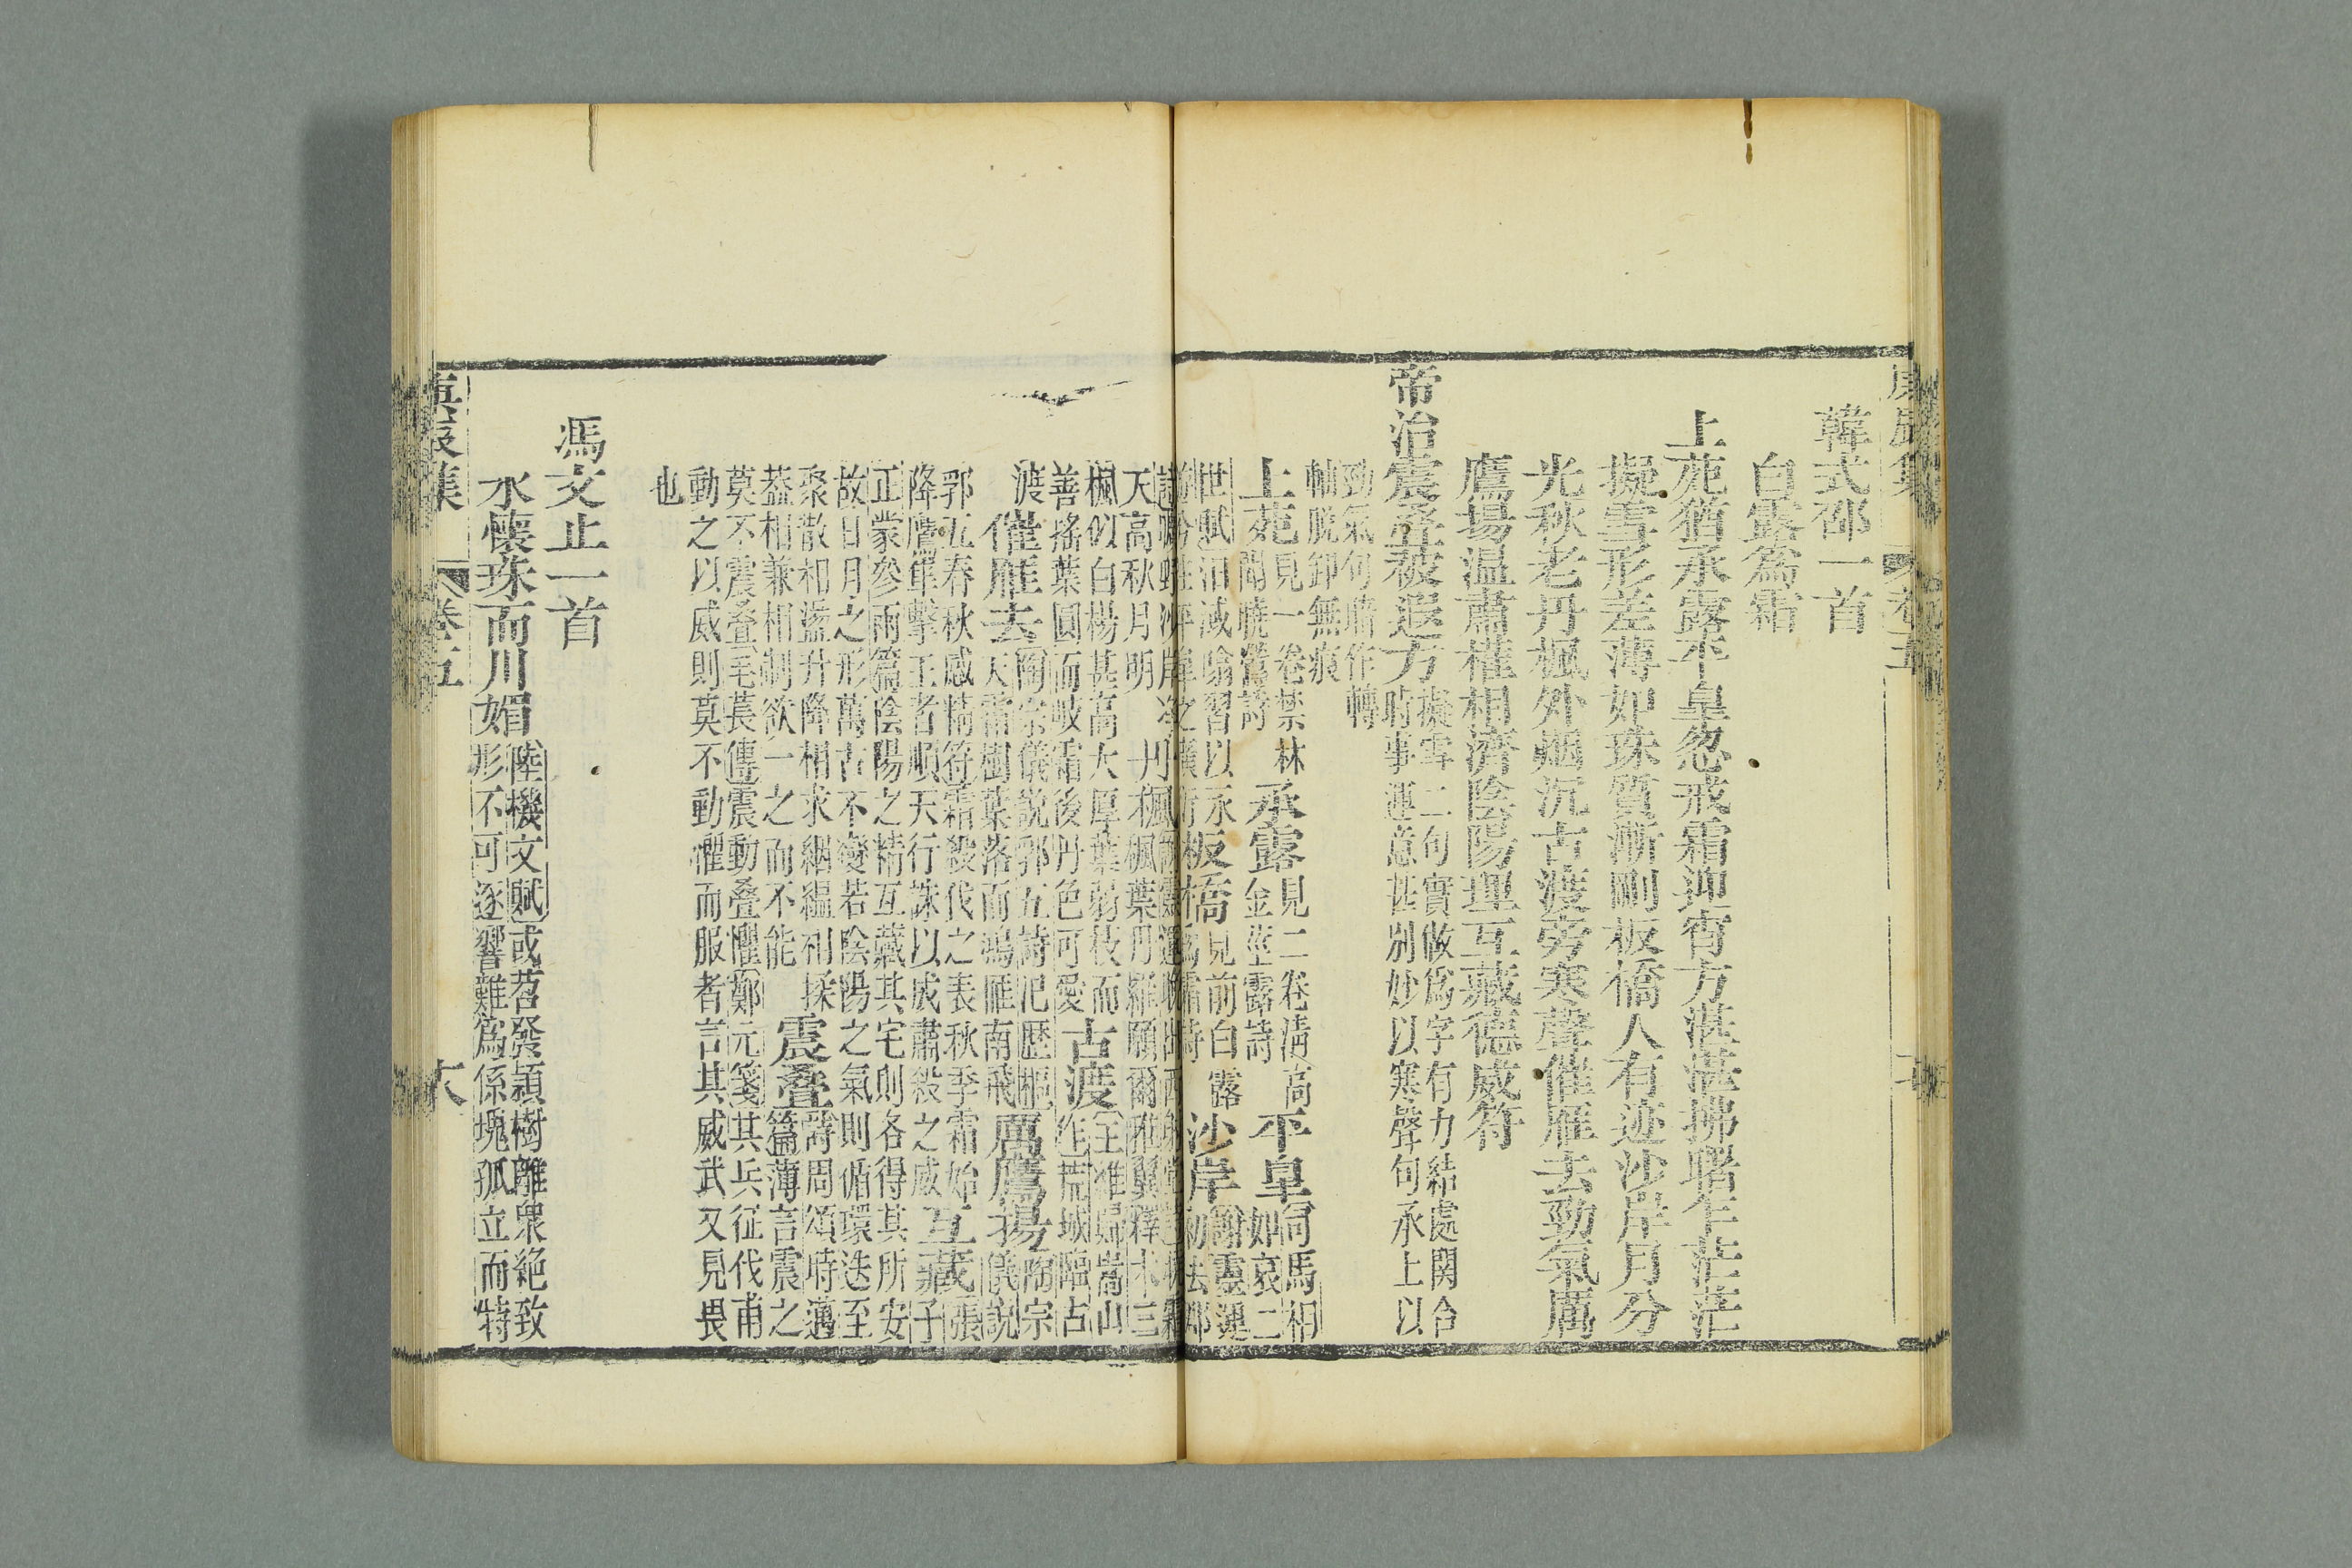 韓式邵一首
白露爲霜
上苑猶承露平皐忽戒霜迎宵方湛湛拂曙乍茫茫
擬雪形差薄如珠質漸剛板橋人有迹沙岸月分
光秋老丹楓外烟沉古渡旁寒聲催雁去勁氣厲
鷹揚温肅權相濟陰陽理互藏德威符
帝治震疊被遐方擬雪二句實做爲字有力結處関合
時事運意甚别妙以寒聲句承上以
勁氣句暗作轉
軸脱卸無痕
上苑見一卷禁林
聞曉鶯詩
承露見二卷淸高
金莖露詩
平皐司馬相
如哀二
世賦汨淢噏習以永
板橋見前白露
爲霜詩
沙岸謝靈運
初去郡
天高秋月明
丹楓
楓葉丹羅願爾雅翼釋木三
楓似白楊甚高大厚葉弱枝而
善搖葉圓而岐霜後丹色可愛
古渡王維歸嵩山
作荒城臨古
渡
催雁去陶宗儀說郛五詩汜歷樞
天霜樹葉落而鴻雁南飛
厲鷹揚陶宗
儀說
郛五春秋感精符霜殺伐之表秋季霜始
降鷹隼擊王者順天行誅以成肅殺之威
互藏張
子
正蒙參兩篇陰陽之精互藏其宅則各得其所安
故日月之形萬古不變若陰陽之氣則循環迭至
聚散相盪升降相求絪縕相揉
葢相兼相制欲一之而不能
震疊詩周頌時邁
篇薄言震之
莫不震疊毛萇傳震動疊懼鄭元箋其兵征伐甫
動之以威則莫不動懼而服者言其威武又見畏
也
馮文止一首
水懷珠而川媚陸機文賦或苕發穎樹離衆絶致
形不可逐響難爲係塊孤立而特
集
卷五